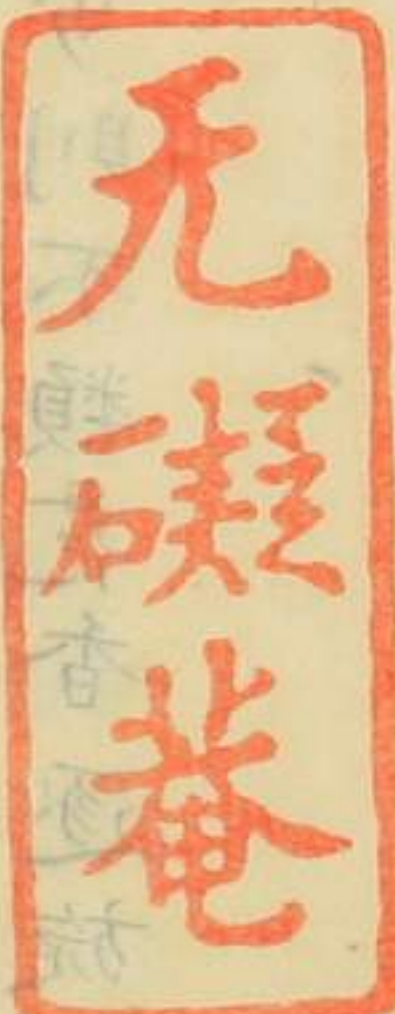 无礙菴